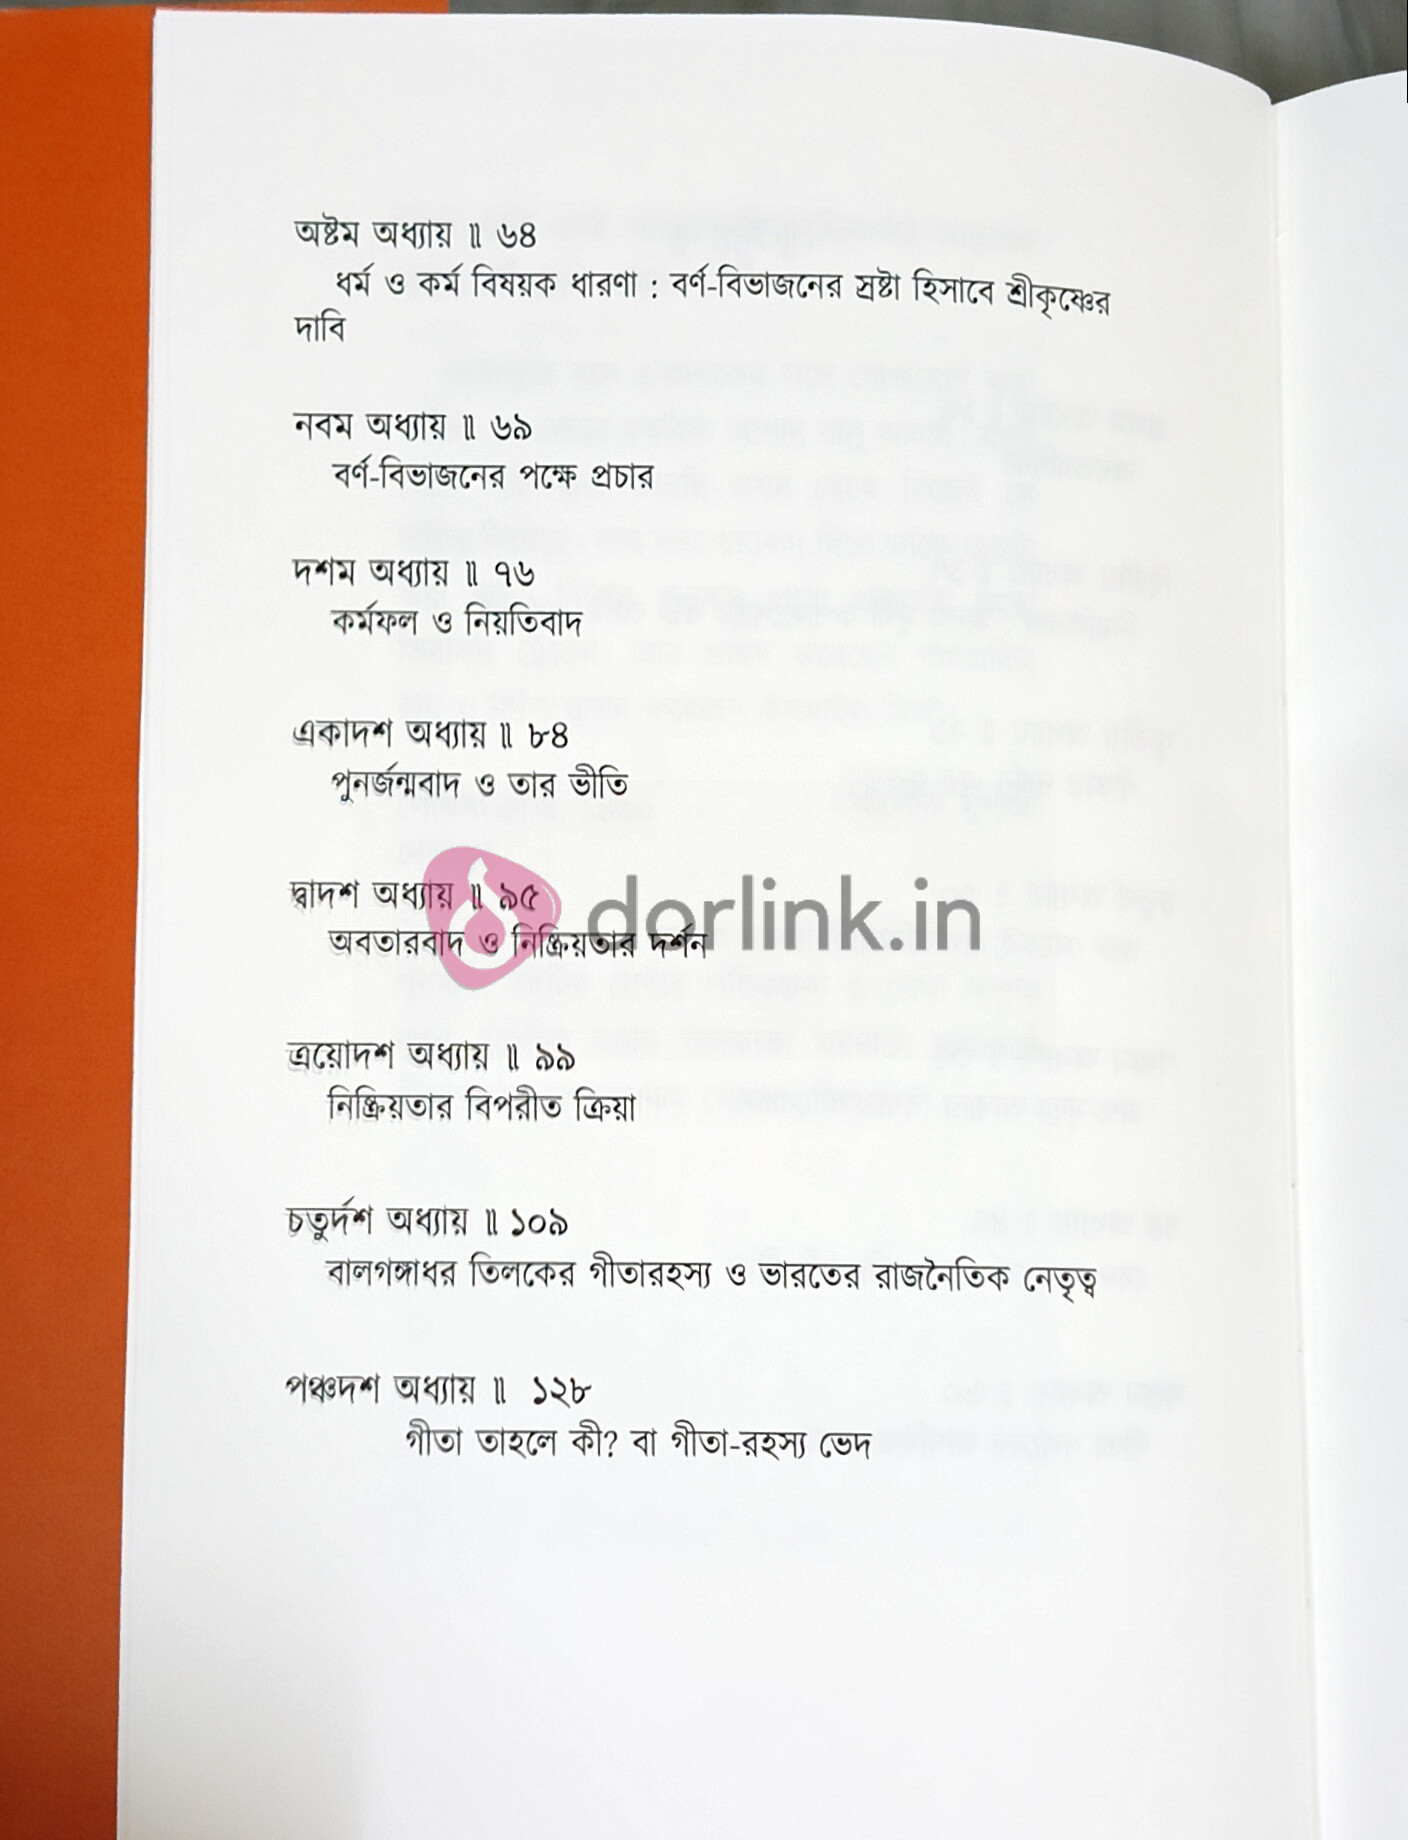 অষ্টম অধ্যায় ॥ ৬৪
ধর্ম ও কর্ম বিষয়ক ধারণা : বর্ণ-বিভাজনের স্রষ্টা হিসাবে শ্রীকৃষ্ণের
দাবি
নবম অধ্যায় ॥ ৬৯
বর্ণ-বিভাজনের পক্ষে প্রচার
দশম অধ্যায় ॥ ৭৬
কর্মফল ও নিয়তিবাদ
একাদশ অধ্যায় ॥ ৮৪
পুনর্জন্মবাদ ও তার ভীতি
দ্বাদশ অধ্যায় ॥ ৯৫
dorlink.in
অবতারবাদ ও নিষ্ক্রিয়তার দর্শন
ত্রয়োদশ অধ্যায় ॥ ৯৯
নিষ্ক্রিয়তার বিপরীত ক্রিয়া
চতুর্দশ অধ্যায় ॥ ১০৯
বালগঙ্গাধর তিলকের গীতারহস্য ও ভারতের রাজনৈতিক নেতৃত্ব
পঞ্চদশ অধ্যায় ॥ ১২৮
গীতা তাহলে কী? বা গীতা-রহস্য ভেদ